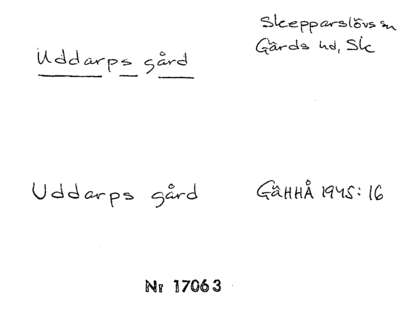 Skepparslövs sn
Uddarps gård
Gärds hd, Sk
Uddarps gård
GäHHÅ 1945: 16
Nr 17063